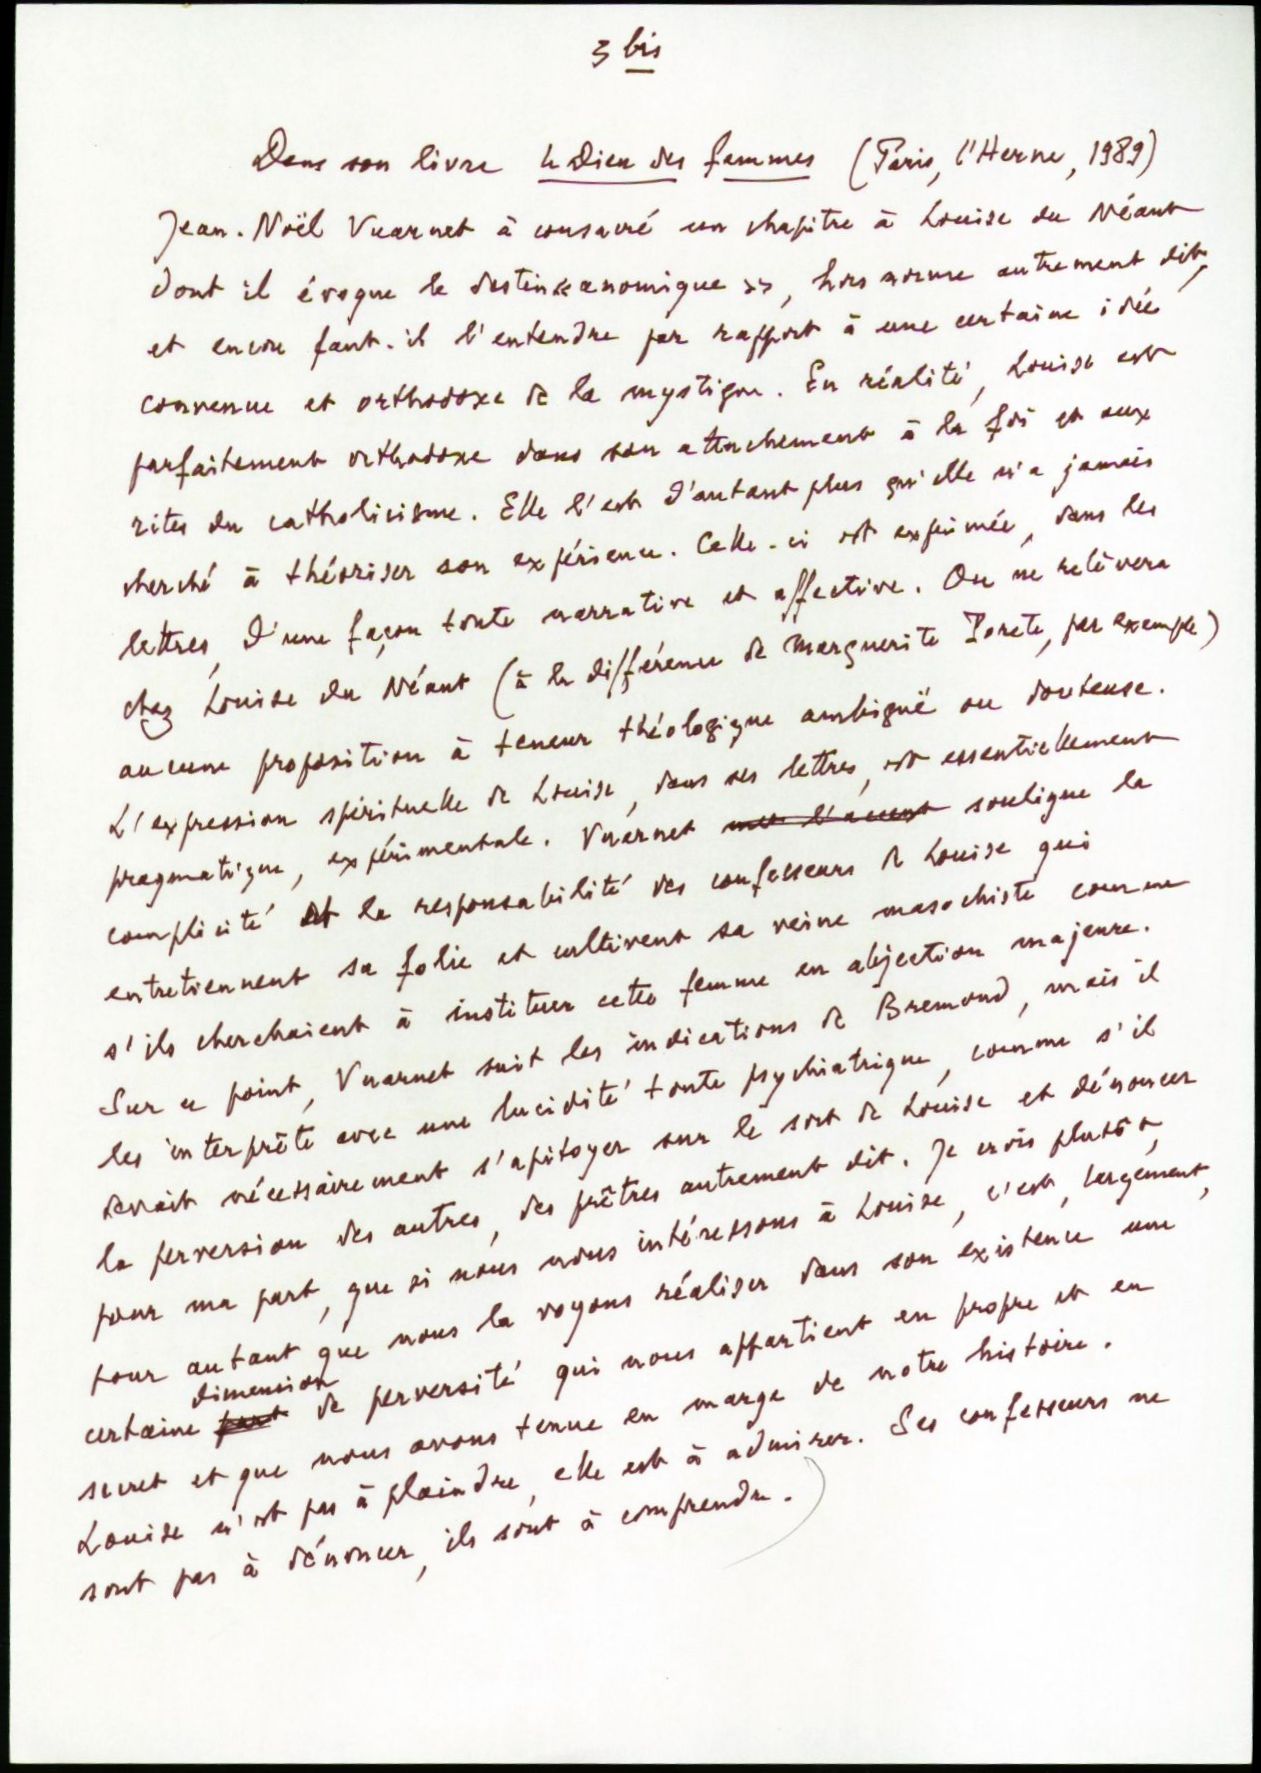 3 bis
Dans son livre Le Dieu des femmes (Paris, l'Herne, 1989)
Jean-Noël Vuarnet à consacré un chapitre à Louise du Néant
dont il évoque le destin « anomique », hors norme autrement dit,
et encore faut-il l'entendre par rapport à une certaine idée
convenue et orthodoxe de la mystique. En réalité, Louise est
parfaitement orthodoxe dans son attachement à la foi et aux
rites du catholicisme. Elle l'est d'autant plus qu'elle n'a jamais
cherché à théoriser son expérience. Celle-ci est exprimée, dans les
lettres, d'une façon toute narrative et affective. On ne relèvera
chez Louise du Néant (à la différence de Marguerite Porete, par exemple)
aucune proposition à teneur théologique ambiguë ou douteuse.
L'expression spirituelle de Louise, dans ses lettres, est essentiellement
pragmatique, expérimentale. Vuarnet met l'accent souligne la
complicité et la responsabilité des confesseurs de Louise qui
entretiennent sa folie et cultivent sa veine masochiste comme
s'ils cherchaient à instituer cette femme en abjection majeure.
Sur ce point, Vuarnet suit les indications de Bremond, mais il
les interprète avec une lucidité toute psychiatrique, comme s'il
devait nécessairement s'apitoyer sur le sort de Louise et dénoncer
la perversion des autres, des prêtres autrement dit. Je crois plutôt,
pour ma part, que si nous nous intéressons à Louise, c'est, largement,
pour autant que nous la voyons réaliser dans son existence une
certaine part dimension de perversité qui nous appartient en propre et en
secret et que nous avons tenue en marge de notre histoire.
Louise n'est pas à plaindre, elle est à admirer. Ses confesseurs ne
sont pas à dénoncer, ils sont à comprendre.)